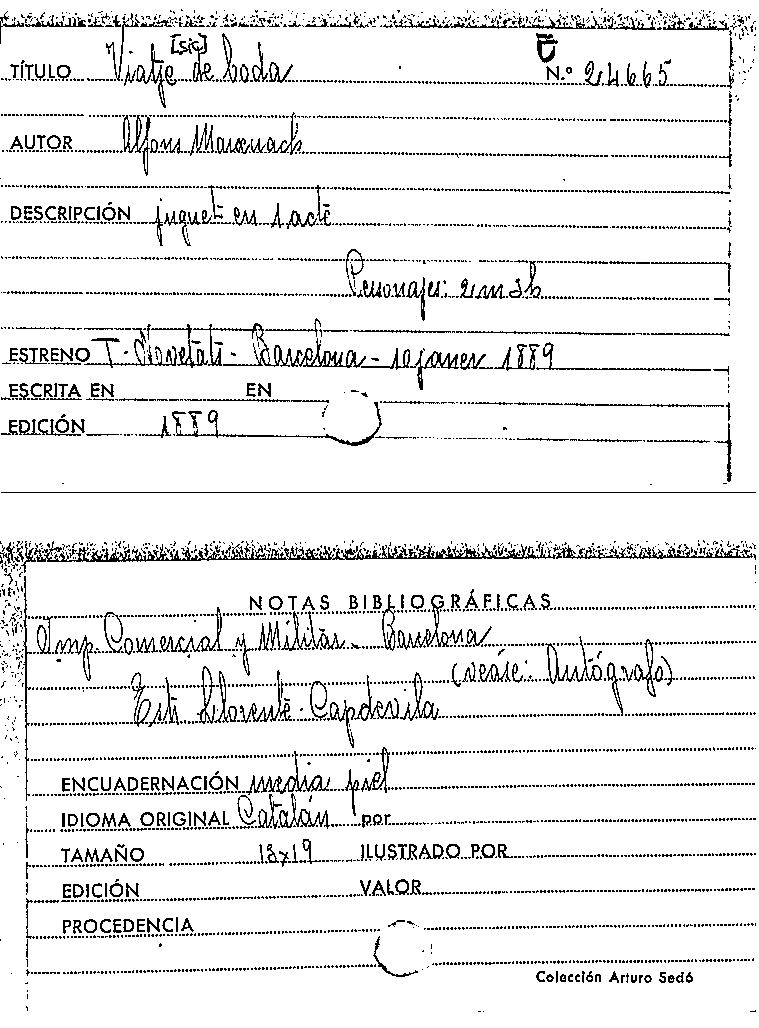 [sic]
TÍTULO Viatje de boda N.º 24665
AUTOR Alfons Maxenach
DESCRIPCIÓN juguet en 1 acte
Personajes: 2 m 3 h
ESTRENO T. Novetats - Barcelona - 10 janer 1889
ESCRITA EN EN
EDICIÓN 1889
NOTAS BIBLIOGRÁFICAS
Imp. Comercial y Militar. Barcelona
(vease: Autógrafo)
Llorente - Capdevila
ENCUADERNACIÓN media piel
IDIOMA ORIGINAL Catalán por
TAMAÑO 13x19 ILUSTRADO POR
EDICIÓN VALOR
PROCEDENCIA
Colección Arturo Sedó